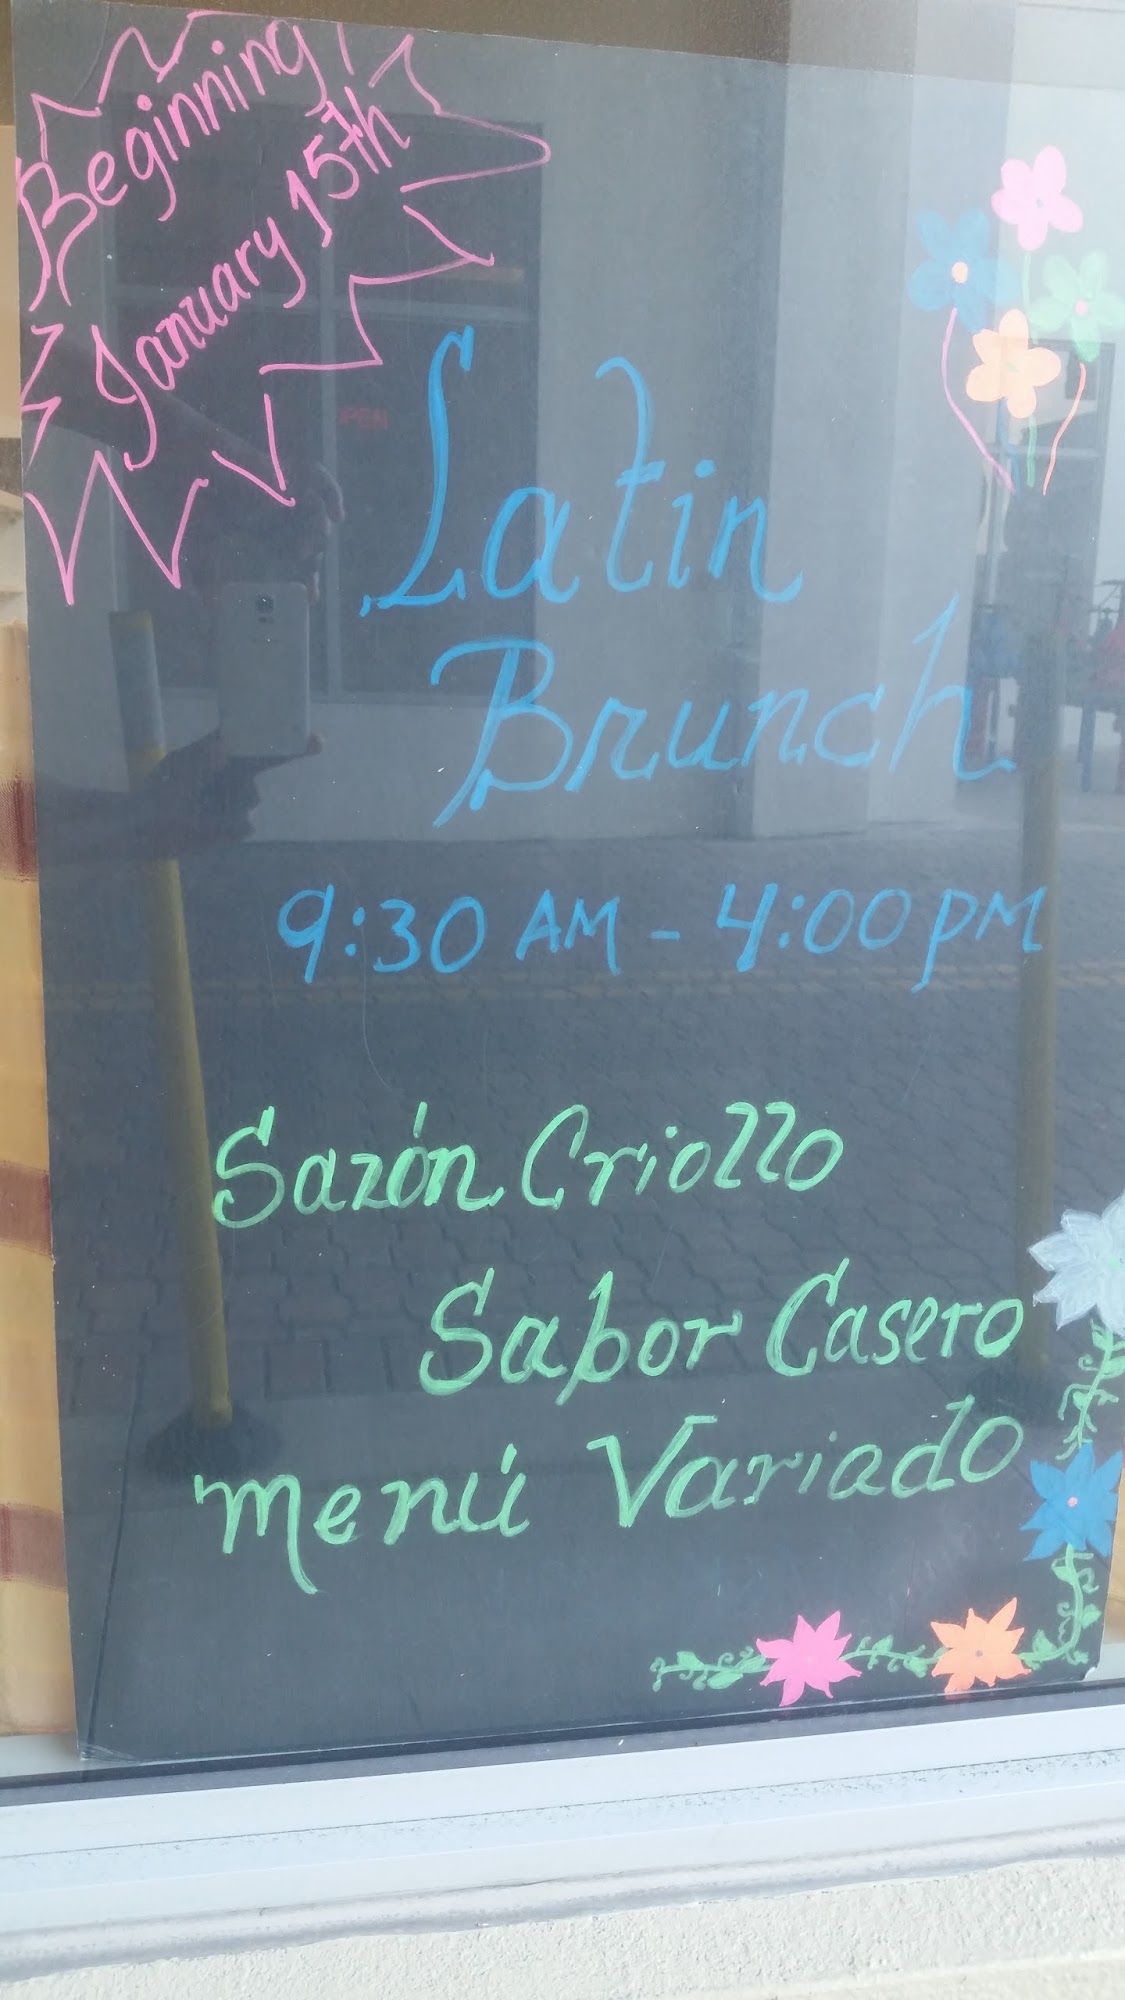 Beginning
January 15th
OPEN
Latin
Brunch
9:30 AM - 4:00 PM
Sazón Criollo
Sabor Casero
Menú Variado